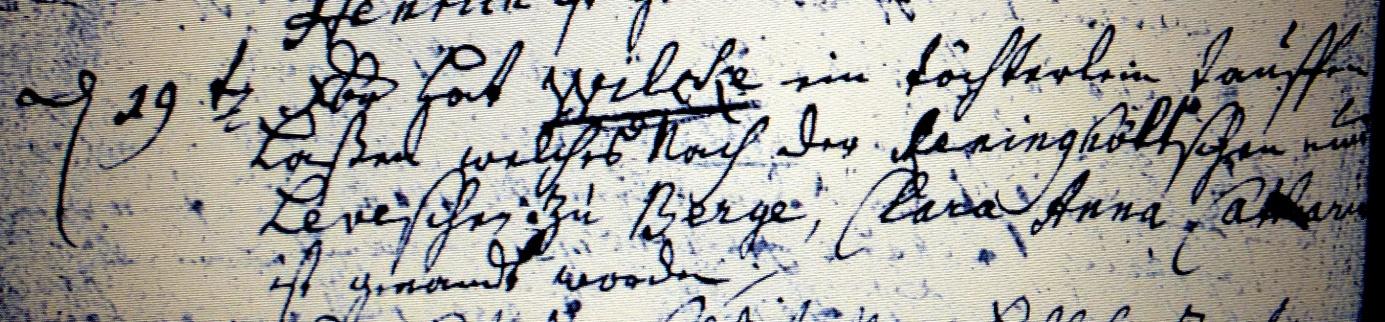 Henrich
d 29 t. hat Wilcke ein töchterlein tauffen
Laßen welches Nach der Reininghöltschen und
Leveschen zu Berge, Clara Anna Catharin
ist genandt worden